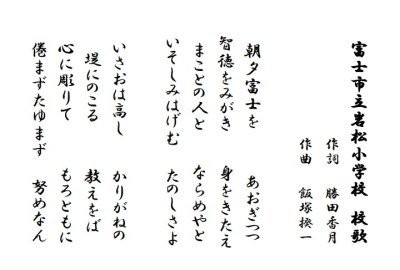 富士市立岩松小学校 校歌
作詞 勝田香月
作曲 飯塚揆一
朝夕富士を あおぎつつ
智徳をみがき 身をきたえ
まことの人と ならめやと
いそしみはげむ たのしさよ
いさおは高し かりがねの
堤にのこる 教えをば
心に彫りて もろともに
倦まずたゆまず 努めなん